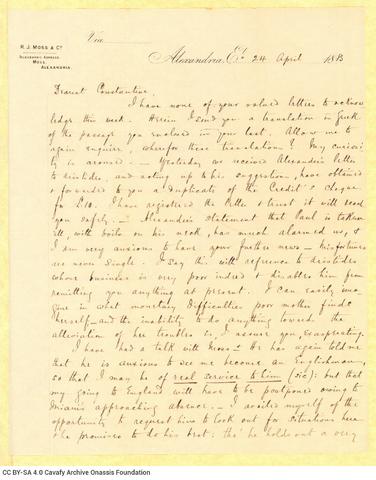 R. J. MOSS & Co
TELEGRAPHIC ADDRESS
MOSS,
ALEXANDRIA.
Via
Alexandria, Et. 24 April 1883
Dearest Constantine,
I have none of your valued letters to acknow
ledge this week. Herein I send you a translation in Greek
of the passage you enclosed in your last. Allow me to
again enquire, wherefore these translations? My curiosi
ty is aroused. — Yesterday we received Alexander's letter
to Aristides, and acting up to his suggestion, have obtained
& forwarded to you a duplicate of the Credit's cheque
for £10. I have registered the letter & trust it will reach
you safely. — Alexander's statement that Paul is taken
ill, with boils on his neck, has much alarmed us, &
I am very anxious to have your further news — misfortunes
are never single. I say this with reference to Aristides
whose business is very poor indeed & disables him from
remitting you anything at present. I can easily ima
gine in what monetary difficulties poor mother finds
herself — and the inability to do anything toward the
alleviation of her troubles is, I assure you, exasperating.
I have had a talk with Moss & He has again told me
that he is anxious to see me become an Englishman,
so that I may be of real service to him (sic): but that
my going to England will have to be postponed owing to
Miani's approaching absence. — I availed myself of the
opportunity to request him to look out for situations here
& he promises to do his best: tho' he holds out a very
CC BY-SA 4.0 Cavafy Archive Onassis Foundation